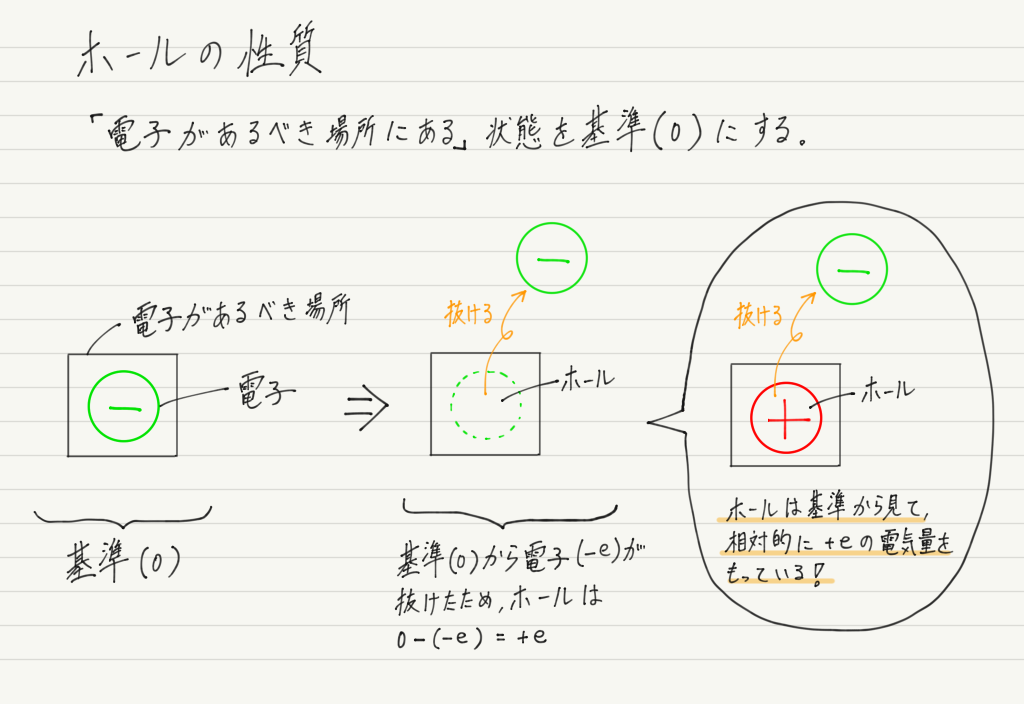 ホールの性質
「電子があるべき場所にある」状態を基準(0)にする。
電子があるべき場所
電子
−
⇒
−
抜ける
ホール
−
抜ける
ホール
+
基準(0)
基準(0)から電子(-e)が
抜けたため,ホールは
0-(-e) = +e
ホールは基準から見て,
相対的に +eの電気量を
もっている!